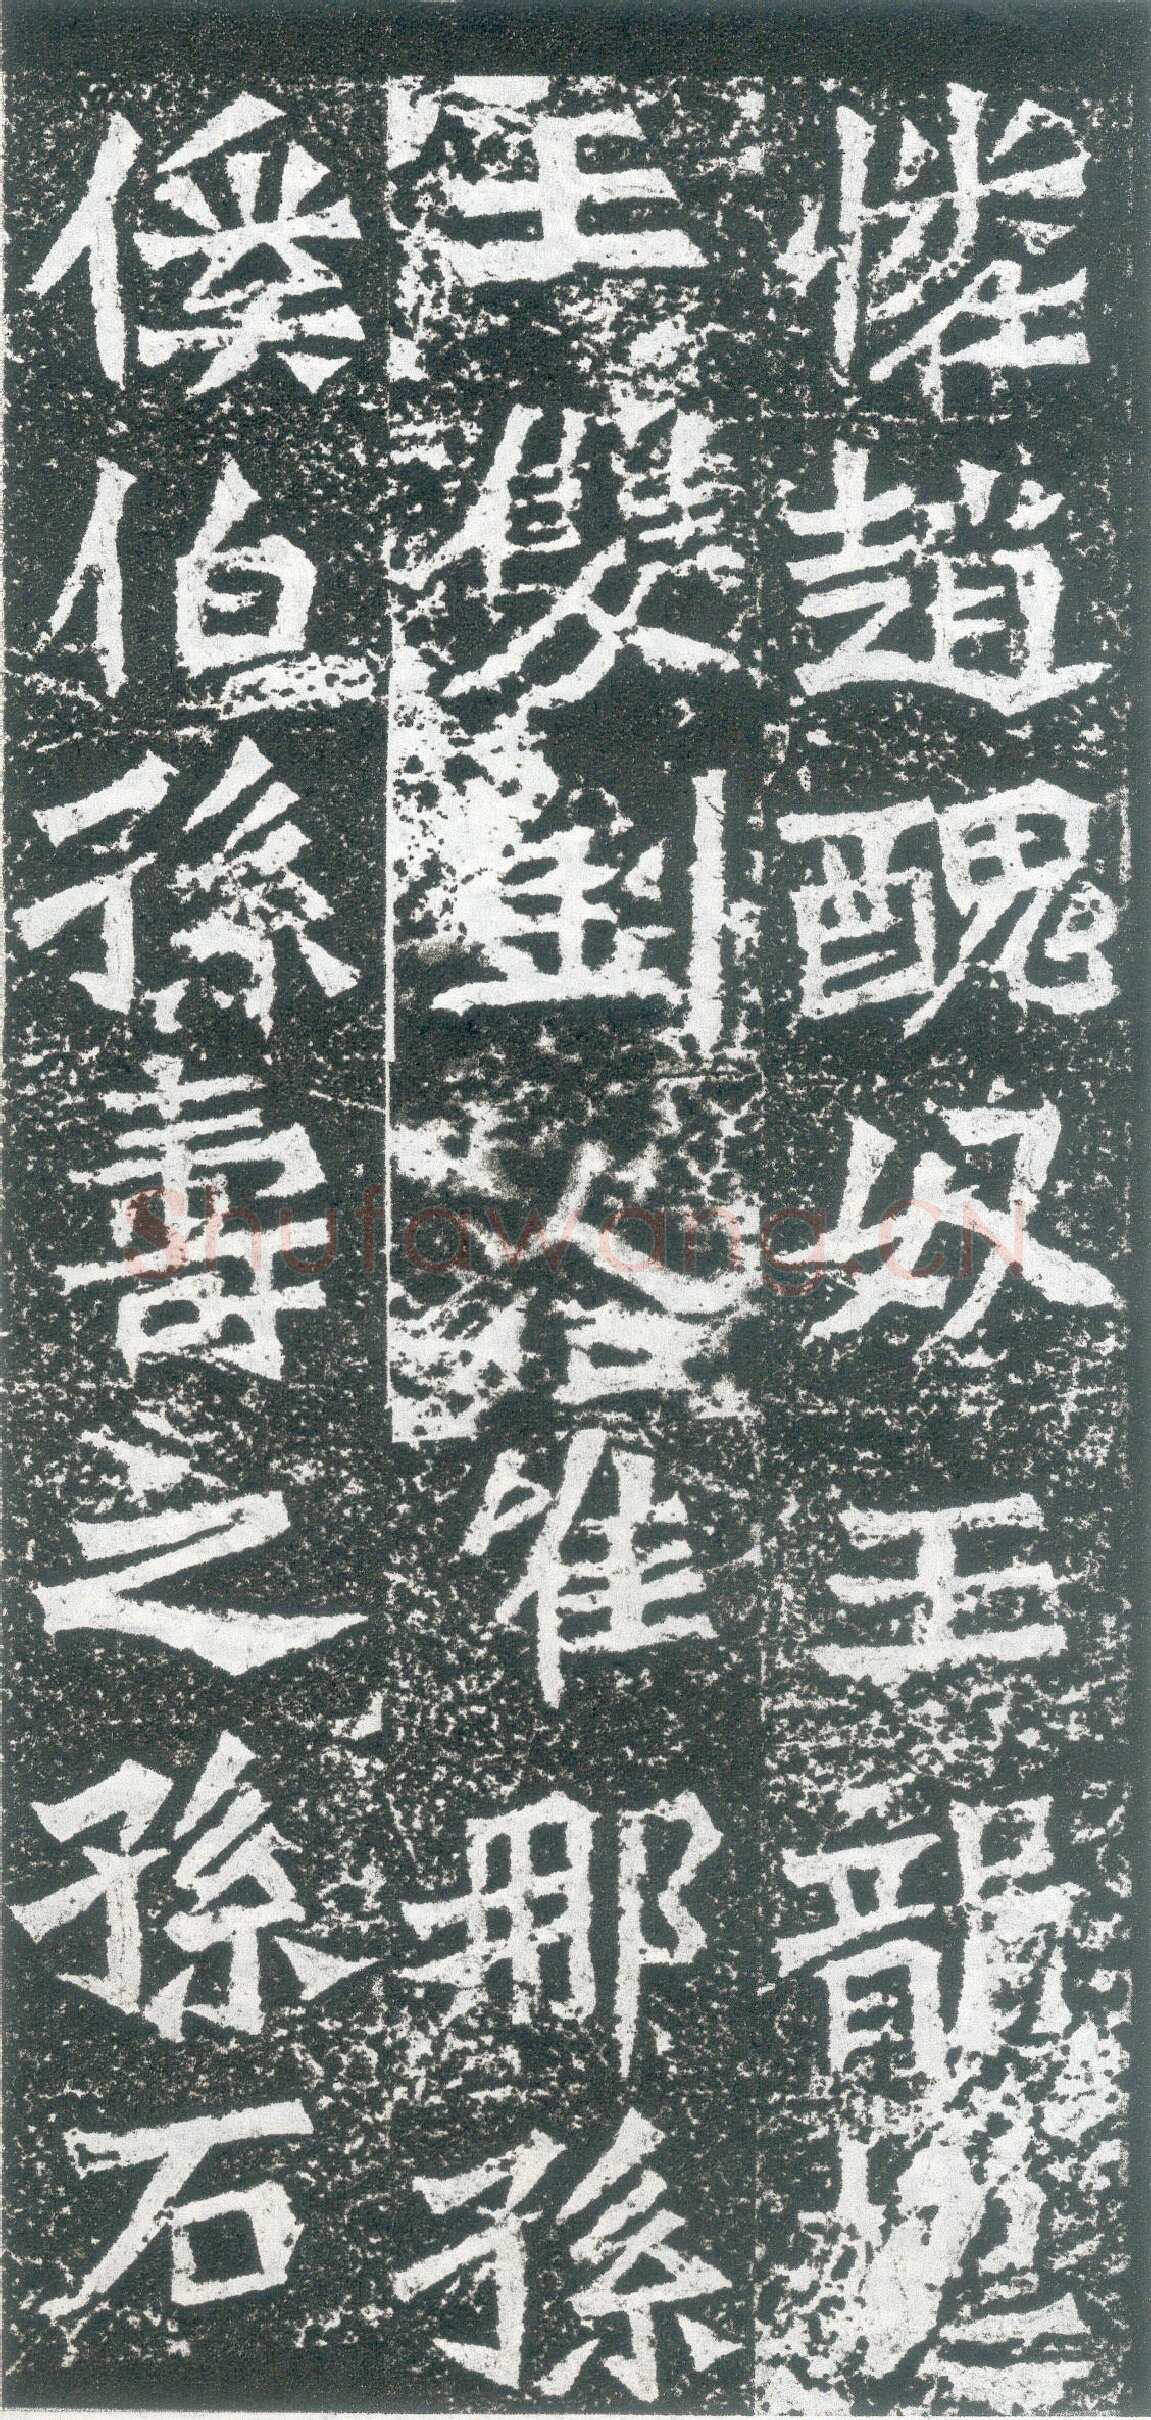 趙醜奴王龍
王雙劉洽唯那孫
伯孫壽之孫石
Shufawang.CN